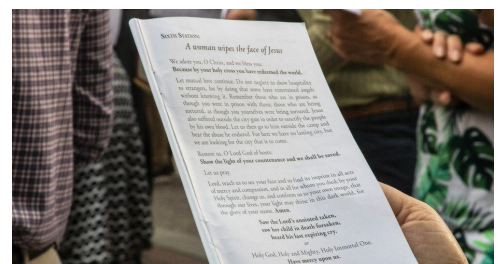 SIXTH STATION:
A woman wipes the face of Jesus
We adore you, O Christ, and we bless you:
Because by your holy cross you have redeemed the world.
Let mutual love continue. Do not neglect to show hospitality
to strangers, for by doing that some have entertained angels
without knowing it. Remember those who are in prison, as
though you were in prison with them; those who are being
tortured, as though you yourselves were being tortured. Jesus
also suffered outside the city gate in order to sanctify the people
by his own blood. Let us then go to him outside the camp and
bear the abuse he endured. For here we have no lasting city, but
we are looking for the city that is to come.
Restore us, O Lord God of hosts:
Show the light of your countenance and we shall be saved.
Let us pray.
Lord, teach us to see your face and to find its imprint in all acts
of mercy and compassion, and in all for whom you thirst by your
Holy Spirit, change us, and conform us to your own image, that
through our lives, your light may shine in this dark world, for
the glory of your name. Amen.
Saw the Lord's anointed taken,
saw her child in death forsaken,
heard his last expiring cry.
or
Holy God, Holy and Mighty, Holy Immortal One,
Have mercy upon us.